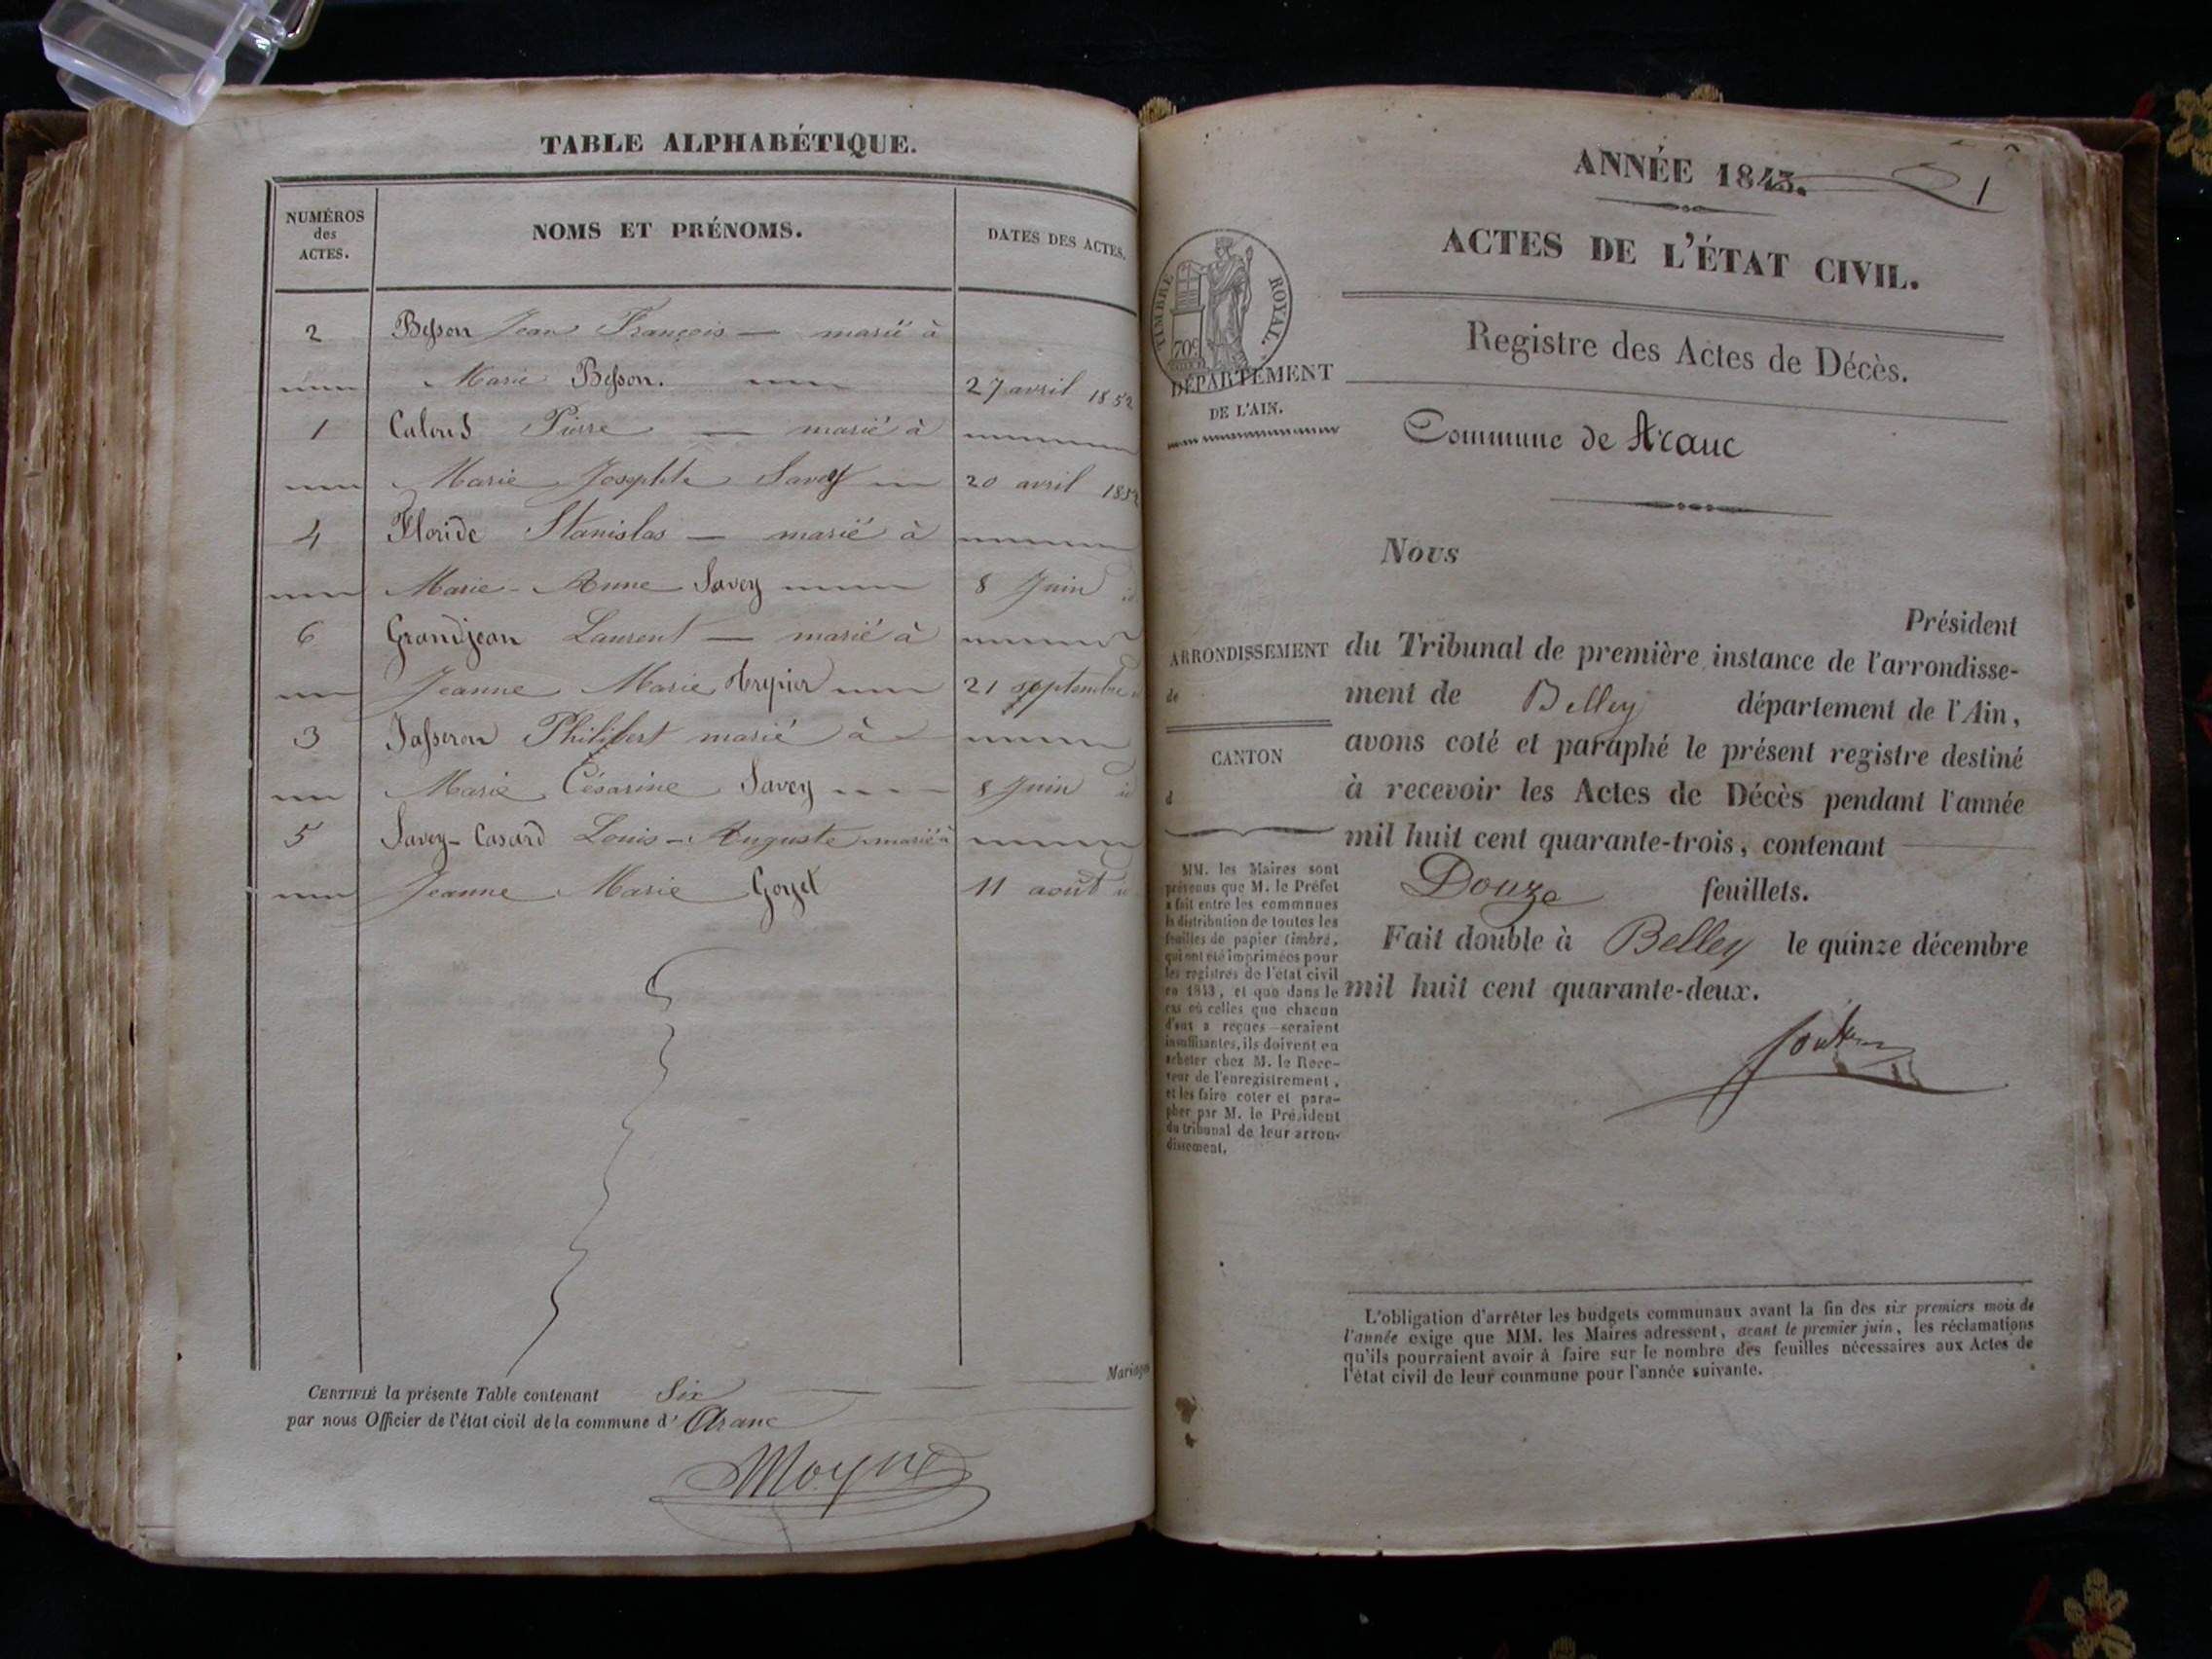 TABLE ALPHABÉTIQUE.
NUMÉROS
des
ACTES.
NOMS ET PRÉNOMS.
DATES DES ACTES.
2 Besson Jean François — marié à
Marie Besson. 27 avril 1852
1 Pierre — marié à
Marie Josephte Savey 20 avril 1852
4 Floride Stanislas — marié à
Marie-Anne Savey 8 Juin id
6 Grandjean Laurent — marié à
Jeanne Marie 21 septembre id
3 Jasseron Philibert marié à
Marie Césarine Savey 8 Juin id
5 Savey-Casard Louis-Auguste marié à
Jeanne Marie Goyet 11 août id
CERTIFIÉ la présente Table contenant Six Mariages
par nous Officier de l'état civil de la commune d' Aranc
Moyne
1
ANNÉE 1843.
ACTES DE L'ÉTAT CIVIL.
TIMBRE ROYAL.
70c
Registre des Actes de Décès.
DÉPARTEMENT
DE L'AIN.
Commune de Aranc
Nous
Président
ARRONDISSEMENT
de
CANTON
d
du Tribunal de première instance de l'arrondisse-
ment de Belley département de l'Ain,
avons coté et paraphé le présent registre destiné
à recevoir les Actes de Décès pendant l'année
mil huit cent quarante-trois, contenant
Douze feuillets.
Fait double à Belley le quinze décembre
mil huit cent quarante-deux.
MM. les Maires sont
prévenus que M. le Préfet
a fait entre les communes
la distribution de toutes les
feuilles de papier timbré,
qui ont été imprimées pour
les registres de l'état civil
en 1843, et que dans le
cas où celles que chacun
d'eux a reçues seraient
insuffisantes, ils doivent en
acheter chez M. le Rece-
veur de l'enregistrement,
et les faire coter et para-
pher par M. le Président
du tribunal de leur arron-
dissement.
L'obligation d'arrêter les budgets communaux avant la fin des six premiers mois de
l'année exige que MM. les Maires adressent, avant le premier juin, les réclamations
qu'ils pourraient avoir à faire sur le nombre des feuilles nécessaires aux Actes de
l'état civil de leur commune pour l'année suivante.